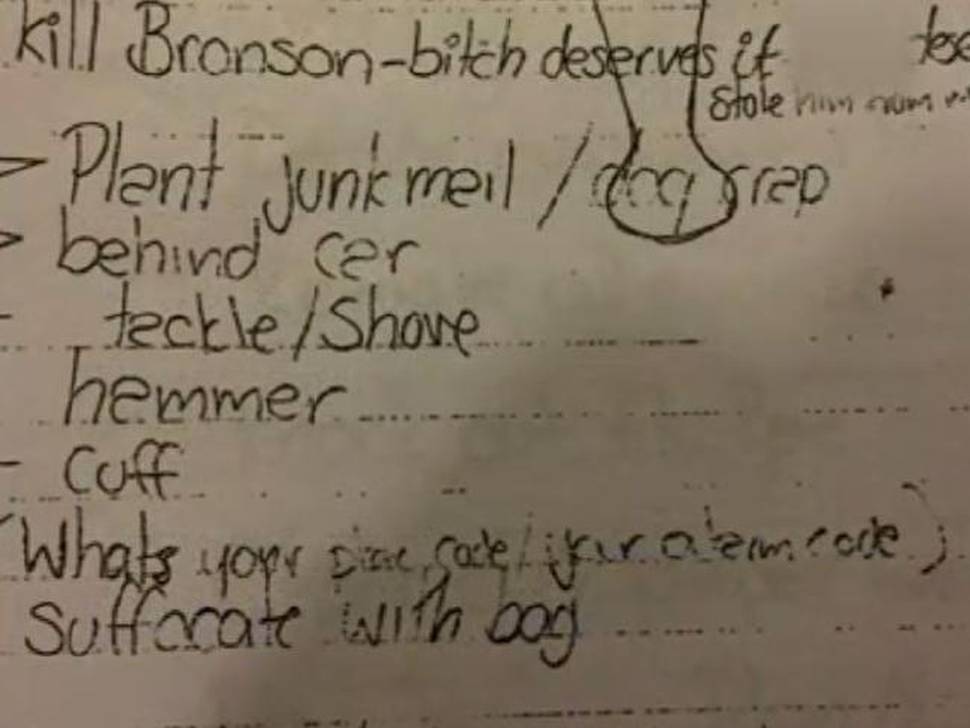 kill Bronson-bitch deserves it
Stole him
Plant junk meil / dog crap
behind car
teckle/Shove
hemmer
- Cuff
(Whats your code/your code)
suffocate with bag